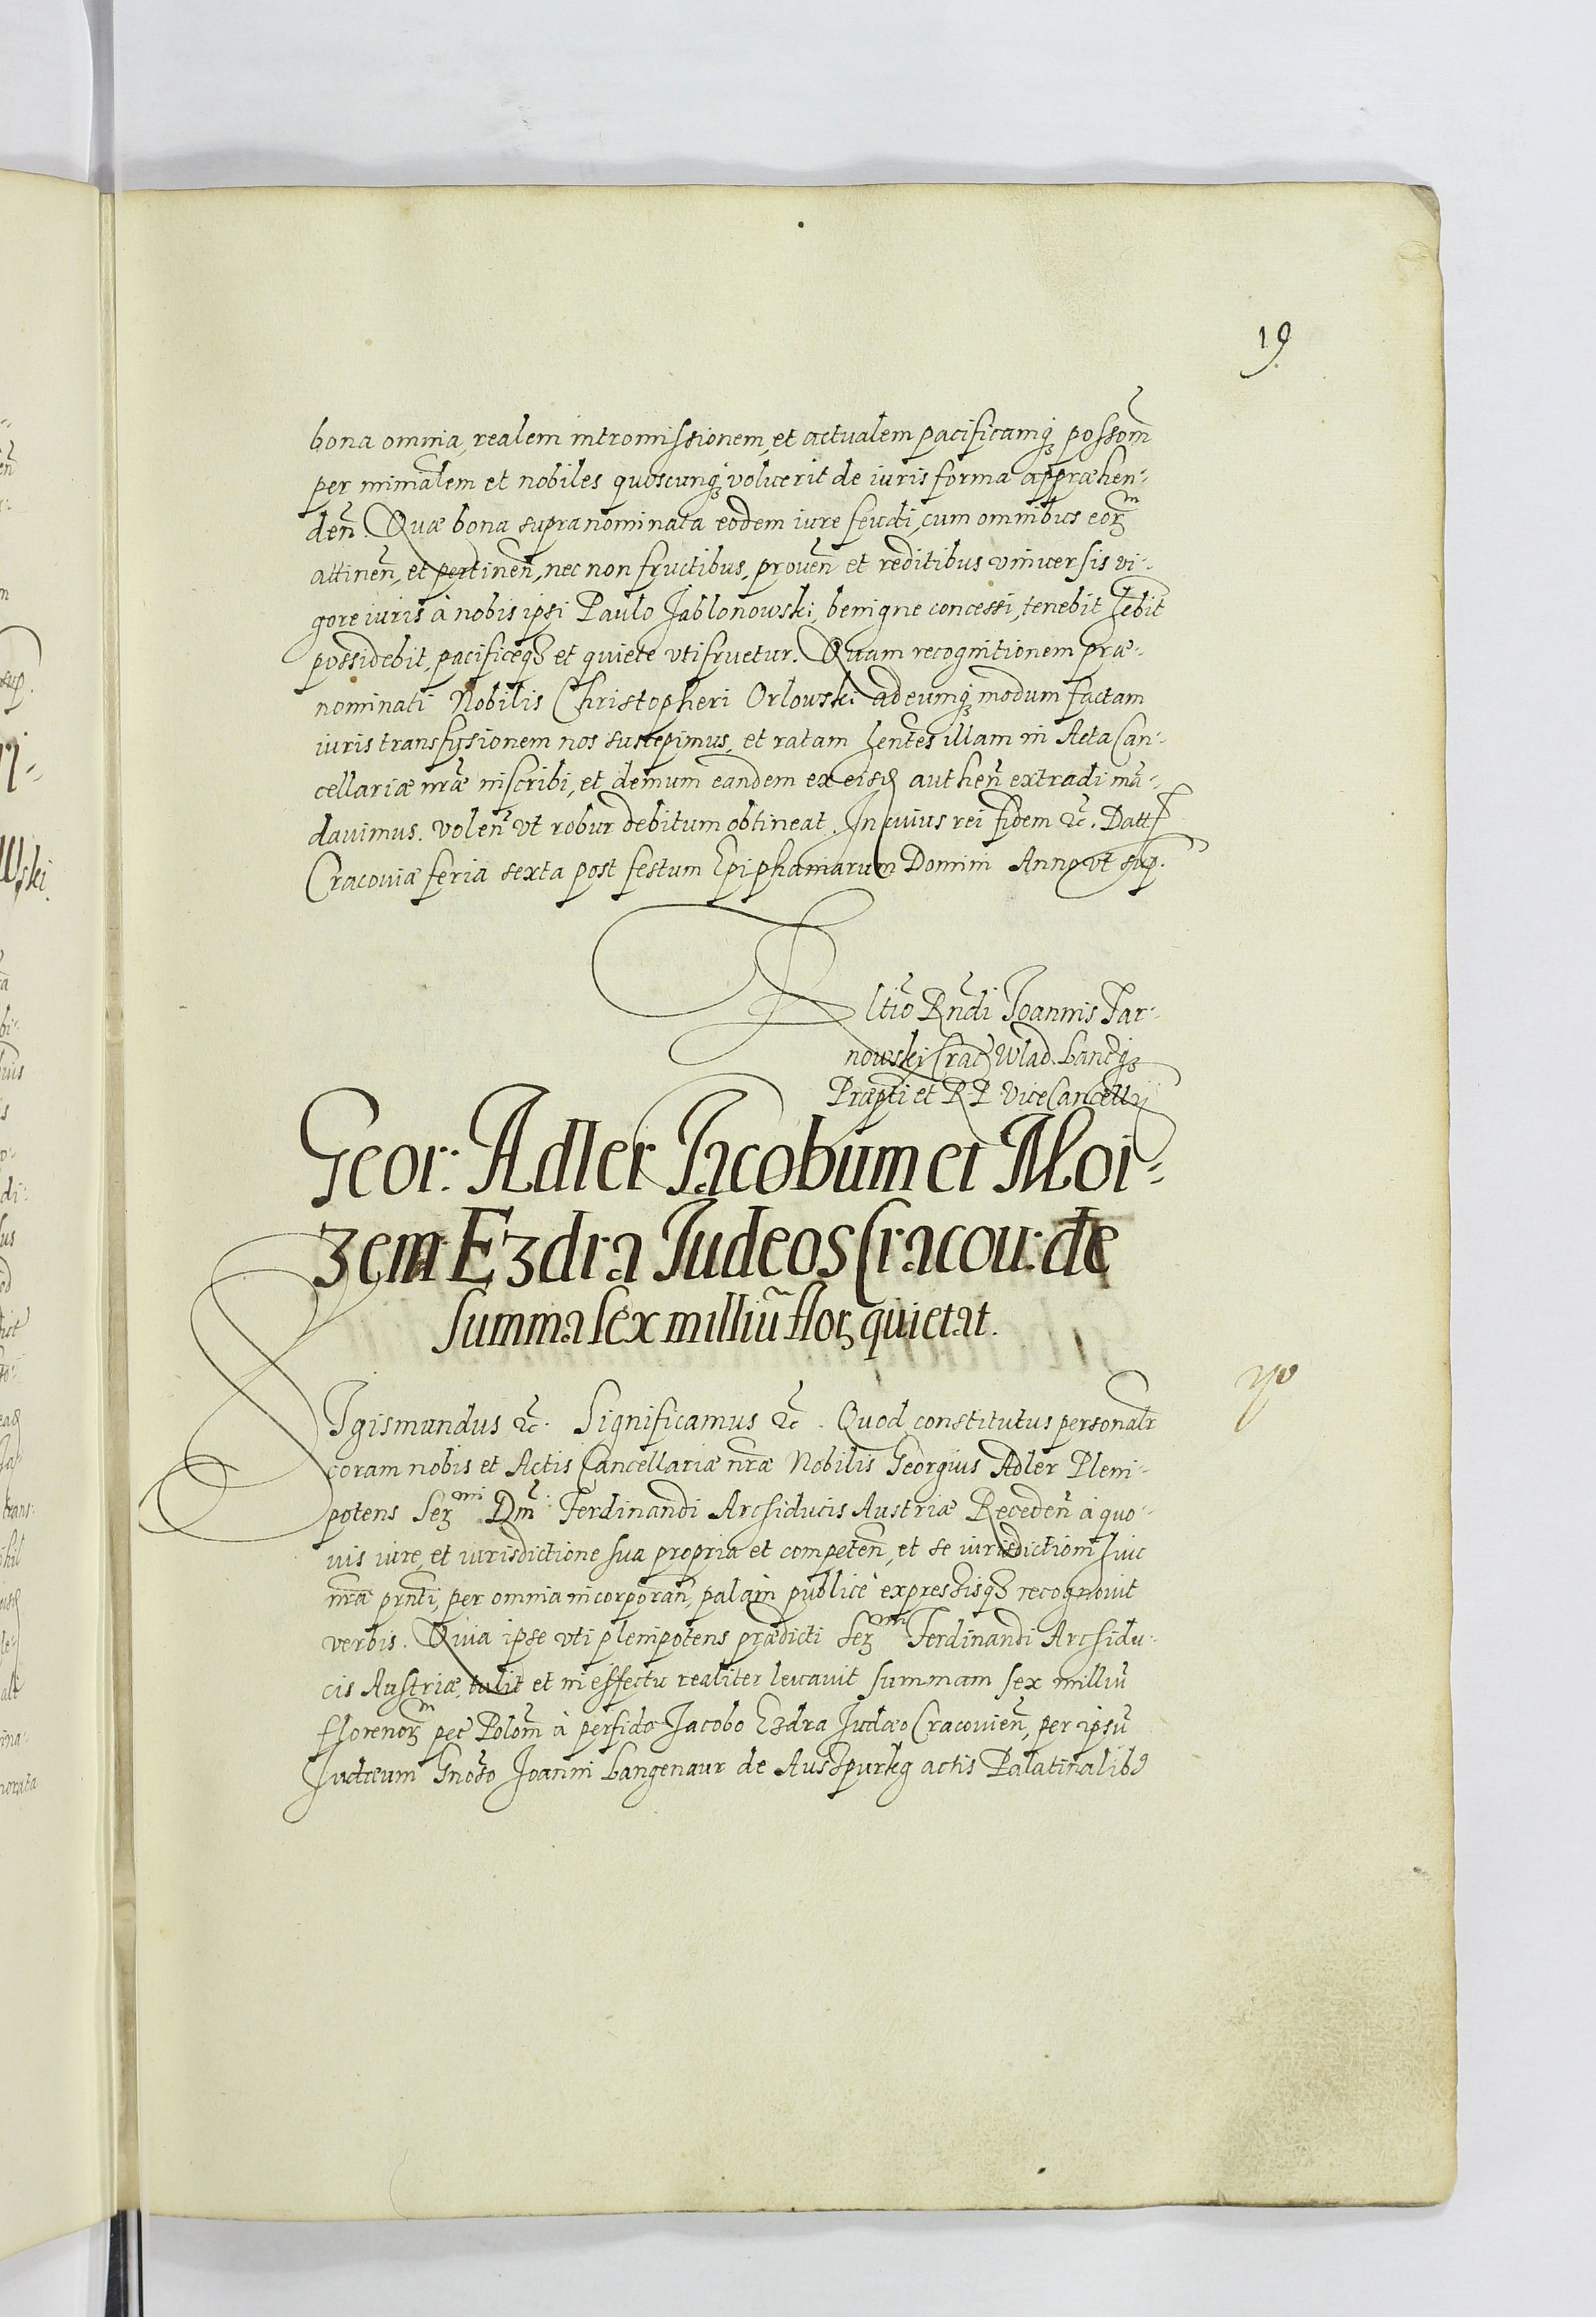 19
bona omnia, realem intromissionem, et actualem pacificamq₃ possom̃
per minialem et nobiles quoscunq₃ voluerit de iuris forma appræhen-
deñ. Quæ bona supranominata eodem iure feudi, cum omnibus eorᵐ
attineñ, et pertineñ, nec non fructibus, proueñ et reditibus vniuersis vi-
gore iuris à nobis ipsi Paulo Jablonowski, benigne concessi, tenebit hẽbit
possidebit, pacificeq₃ et quiete vtifruetur. Quam recognitionem præ-
nominati Nobilis Christopheri Orlowski ad eumq₃ modum factam
iuris transfusionem nos suscepimus, et ratam hentes illam in Acta Can-
cellariæ nr̃æ inscribi, et demum eandem ex eisd authen̄ extradi mã-
dauimus. voleñ vt robur debitum obtineat. In cuius rei fidem &c. Datt
Cracouiæ feria sexta post festum Epiphaniarum Domini Anno vt sup.
Rltio Rndi Joannis Tar-
nowski Crac Wlad. Lancq₃
Præpti et RP Vice Cancellrij
Geor: Adler Jacobum et Moi-
zem Ezdra Judeos Cracou: de
summa sex milliũ flor quietat.
SIgismundus &c. Significamus &c. Quod constitutus personalr
coram nobis et Actis Cancellariæ nr̃æ Nobilis Georgius Adler Pleni-
potens Serᵐⁱ Dm̃ Ferdinandi Archiducis Austriæ Recedeñ à quo-
uis iure, et iurisdictione sua propria et competeñ, et se iurisdictioni huic
nr̃æ prñti, per omnia incorporañ, palam publicè expressisq₃ recognouit
verbis. Quia ipse vti plenipotens prædicti Serᵐⁱ Ferdinandi Archidu-
cis Austriæ, tulit et in effectu realiter leuauit summam sex milliũ
florenorᵐ pec̃ Polom̃ à perfido Jacobo Ezdra Judæo Cracouieñ, per ipsũ
Judæum Gnoso Joanni Langenaur de Auszpurkg actis Palatinalib9